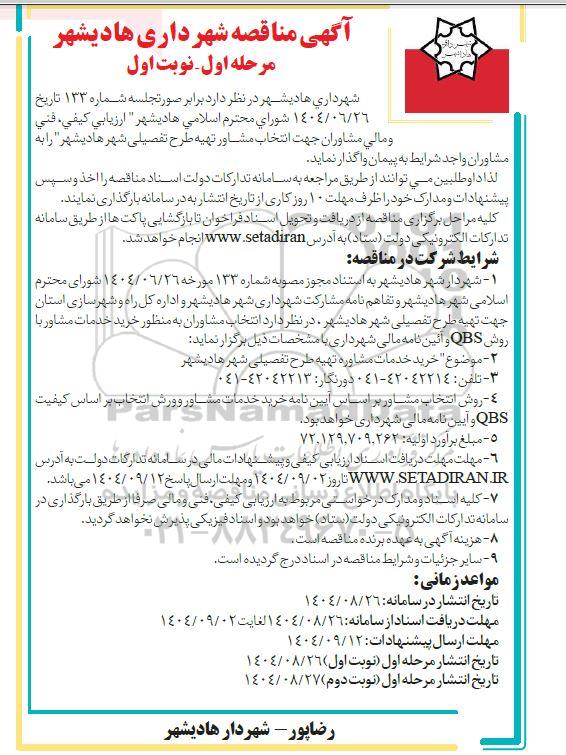 آگهی مناقصه شهرداری هادیشهر
مرحله اول - نوبت اول
شهرداري هاديشهر در نظر دارد برابر صورتجلسه شماره ۱۳۳ تاريخ
۱۴۰۴/۰۶/۲۶ شوراي محترم اسلامي هاديشهر " ارزيابي كيفي، فني
ومالي مشاوران جهت انتخاب مشاور تهيه طرح تفصيلي شهر هاديشهر" را به
مشاوران واجد شرايط به پيمان واگذار نمايد.
لذا داوطلبين مي توانند از طريق مراجعه به سامانه تداركات دولت اسناد مناقصه را اخذ و سپس
پيشنهادات ومدارك خود را ظرف مهلت ۱۰ روز كاري از تاريخ انتشار به در سامانه بارگذاري نمايند.
كليه مراحل برگزاري مناقصه از دريافت و تحويل اسناد فراخوان تا بازگشايي پاكت ها از طريق سامانه
تداركات الكترونيكي دولت (ستاد) به آدرس www.setadiran انجام خواهد شد.
شرایط شرکت در مناقصه:
۱- شهردار شهر هادیشهر به استناد مجوز مصوبه شماره ۱۳۳ مورخه ۱۴۰۴/۰۶/۲۶ شورای محترم
اسلامی شهر هادیشهر و تفاهم نامه مشارکت شهرداری شهر هادیشهر و اداره کل راه و شهرسازی استان
جهت تهیه طرح تفصیلی شهر هادیشهر ، در نظر دارد انتخاب مشاوران به منظور خرید خدمات مشاور با
روش QBS و آئین نامه مالی شهرداری با مشخصات ذیل برگزار نماید:
۲- موضوع" خرید خدمات مشاوره تهیه طرح تفصیلی شهر هادیشهر
۳- تلفن: ۴۲۰۴۲۲۱۴-۰۴۱ دورنگار: ۴۲۰۴۲۲۱۳-۰۴۱
۴- روش انتخاب مشاور بر اساس آیین نامه خرید خدمات مشاور وورش انتخاب بر اساس کیفیت
QBS و آیین نامه مالی شهرداری خواهد بود.
۵- مبلغ برآورد اولیه: ۷۲.۱۲۹.۷۰۹.۲۶۲
۶- مهلت مهلت دریافت اسناد ارزیابی کیفی و پیشنهادات مالی در سامانه تدارکات دولت به آدرس
WWW.SETADIRAN.IR تا روز ۱۴۰۴/۰۹/۰۲ و مهلت ارسال پاسخ ۱۴۰۴/۰۹/۱۲ می باشد.
۷- کلیه اسناد و مدارک درخواستی مربوط به ارزیابی کیفی، فنی و مالی صرفا از طریق بارگذاری در
سامانه تدارکات الکترونیکی دولت (ستاد) خواهد بود و اسناد فیزیکی پذیرش نخواهد گردید.
۸- هزینه آگهی به عهده برنده مناقصه است.
۹- سایر جزئیات و شرایط مناقصه در اسناد درج گردیده است.
مواعد زمانی:
تاریخ انتشار در سامانه: ۱۴۰۴/۰۸/۲۶
مهلت دریافت اسناد از سامانه: ۱۴۰۴/۰۸/۲۶ لغایت ۱۴۰۴/۰۹/۰۲
مهلت ارسال پیشنهادات: ۱۴۰۴/۰۹/۱۲
تاریخ انتشار مرحله اول (نوبت اول) ۱۴۰۴/۰۸/۲۶
تاریخ انتشار مرحله اول (نوبت دوم) ۱۴۰۴/۰۸/۲۷
رضاپور – شهردار هادیشهر
ParsNamadData
۰۲۱-۸۸۳۴۹۶۷۰-۵